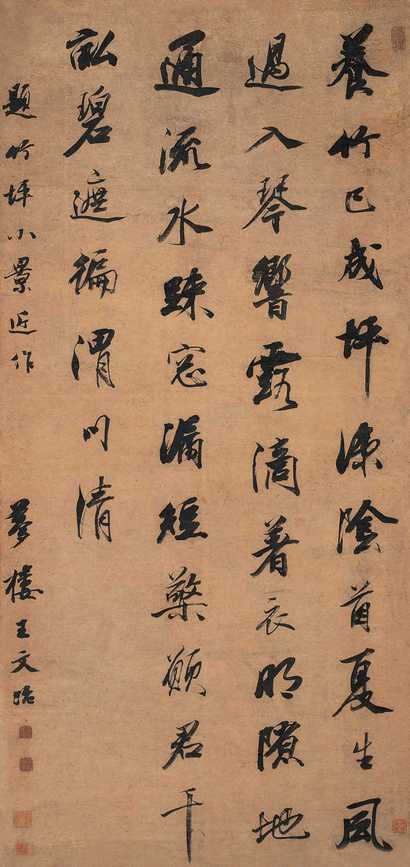 養竹已成坪涼陰首夏生風
過入琴響露滴着衣明隙地
通流水疎窓漏短檠願君千
畝碧遮徧渭川清
題竹坪小景近作 夢樓王文治